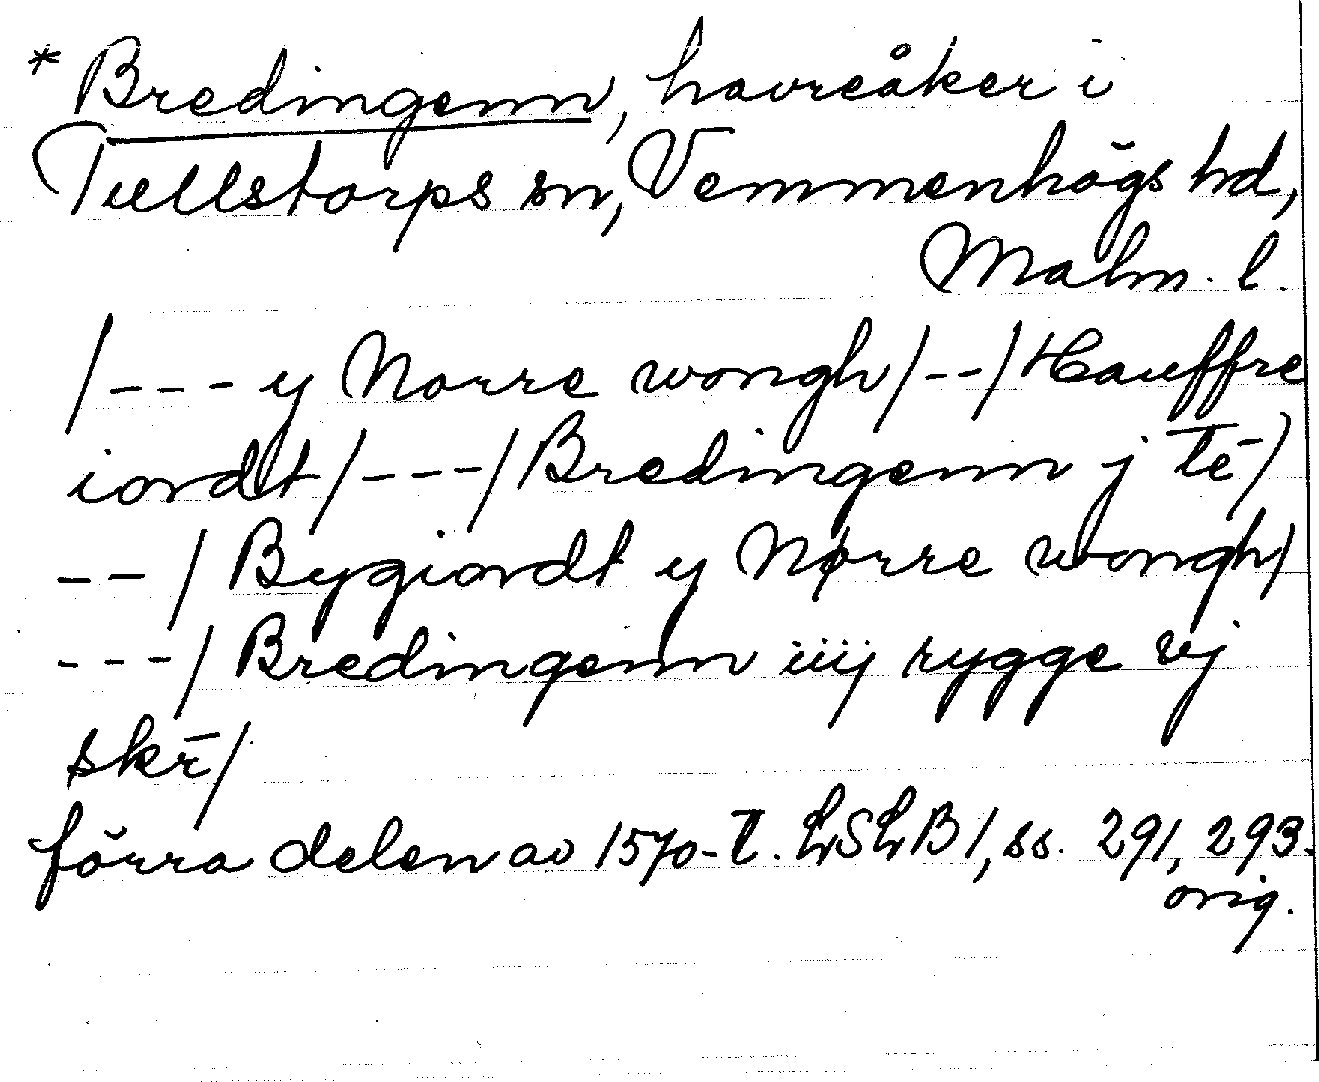 * Bredingenn, havreåker i
Tullstorps sn, Vemmenhögs hd,
Malm. l.
/--- y Norre wongh/--/Hauffre
iordt/---/Bredingenn j tē/
--/Bygiordt y Nørre wongh/
---/Bredingenn iiij rygge vj
skr̄/
förra delen av 1570-t. LSLB1, ss. 291, 293.
orig.